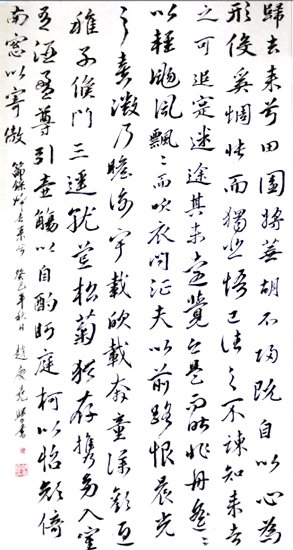 歸去来兮田園將蕪胡不歸既自以心為
形役奚惆悵而獨悲悟已往之不諫知来者
之可追寔迷途其未遠覺今是而昨非舟遙〻
以輕颺風飄〻而吹衣問征夫以前路恨晨光
之熹微乃瞻衡宇載欣載奔童僕歡迎
稚子候門三逕就荒松菊猶存攜幼入室
有酒盈尊引壺觴以自酌眄庭柯以怡顏倚
南窓以寄傲 節錄歸去来兮 癸巳年秋日 趙